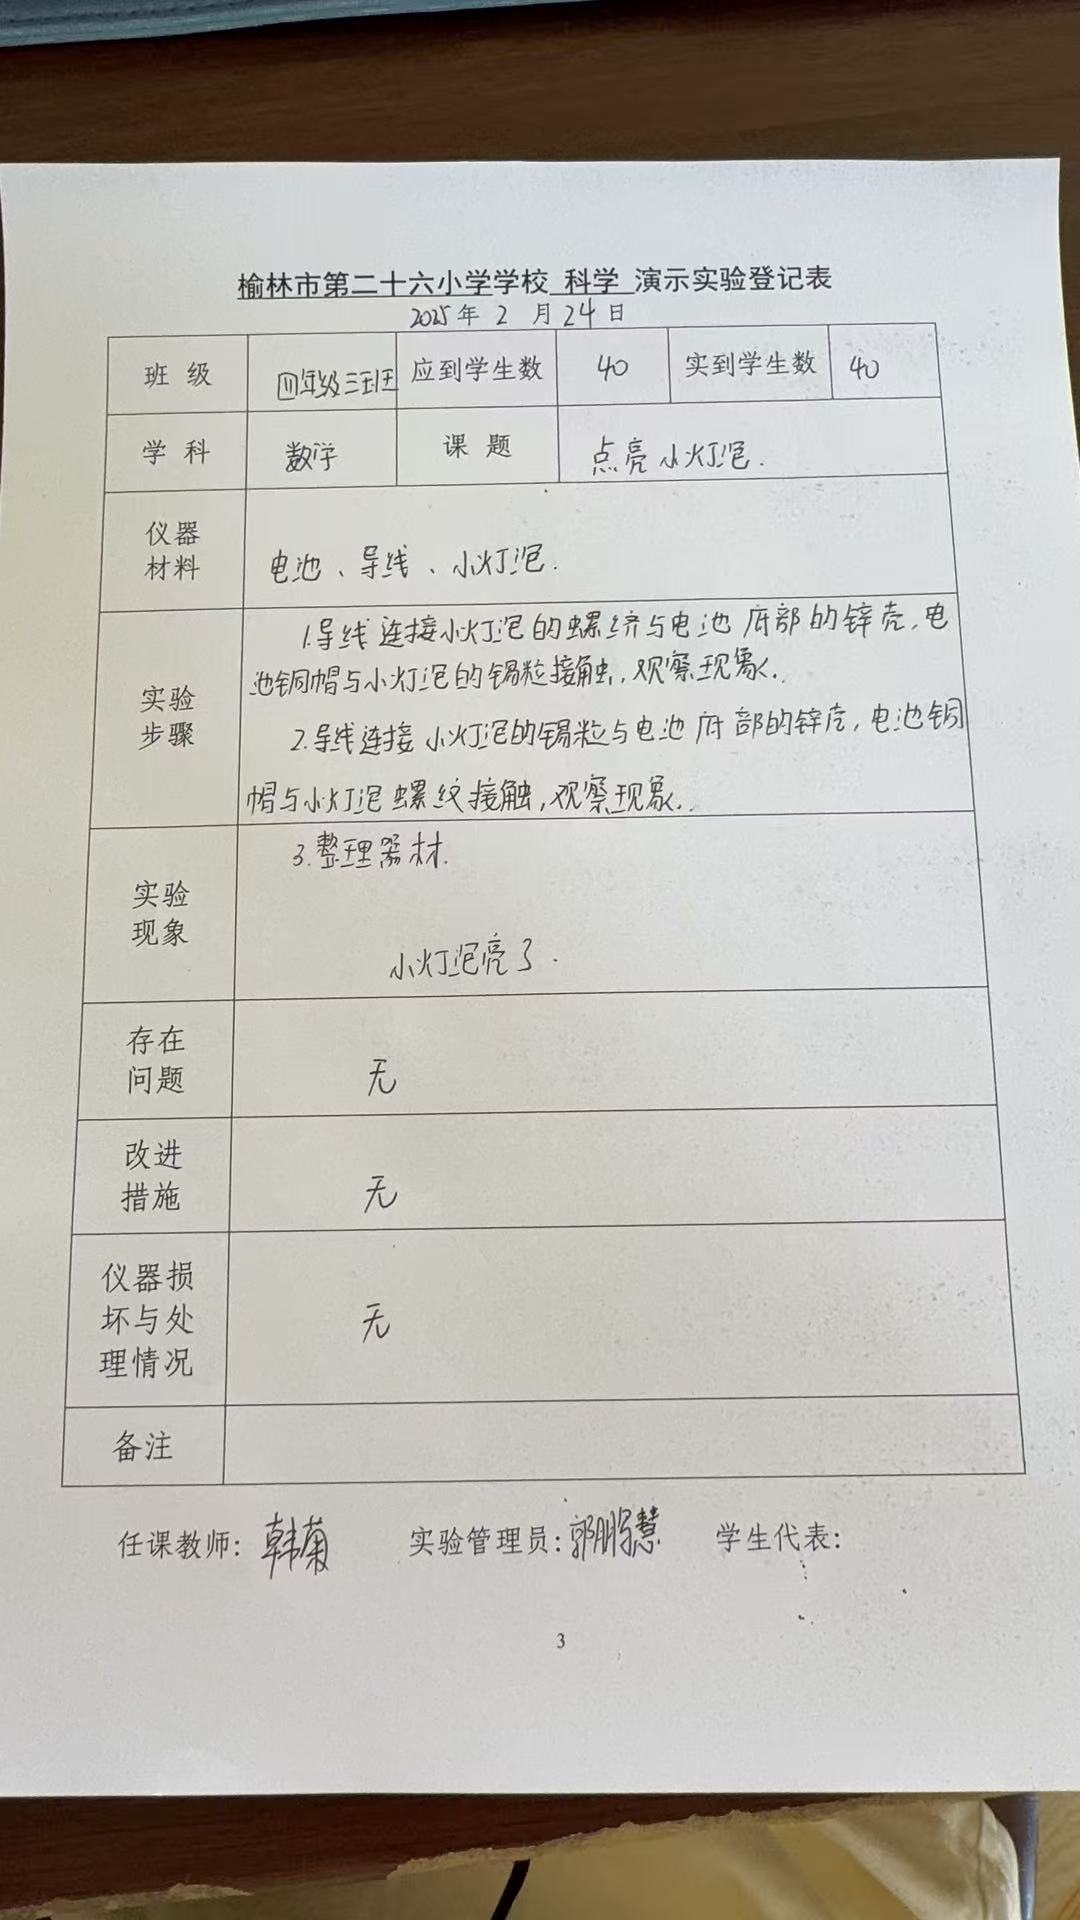 榆林市第二十六小学学校 科学 演示实验登记表
2025年 2 月 24日
班 级 四年级三班 应到学生数 40 实到学生数 40
学 科 数学 课 题 点亮小灯泡.
仪器
材料
电池、导线、小灯泡.
实验
步骤
1.导线连接小灯泡的螺纹与电池底部的锌壳,电
池铜帽与小灯泡的锡粒接触,观察现象.
2.导线连接小灯泡的锡粒与电池底部的锌壳,电池铜
帽与小灯泡螺纹接触,观察现象.
3.整理器材.
实验
现象
小灯泡亮了.
存在
问题
无
改进
措施
无
仪器损
坏与处
理情况
无
备注
任课教师: 韩菊 实验管理员: 郭 慧 学生代表:
3